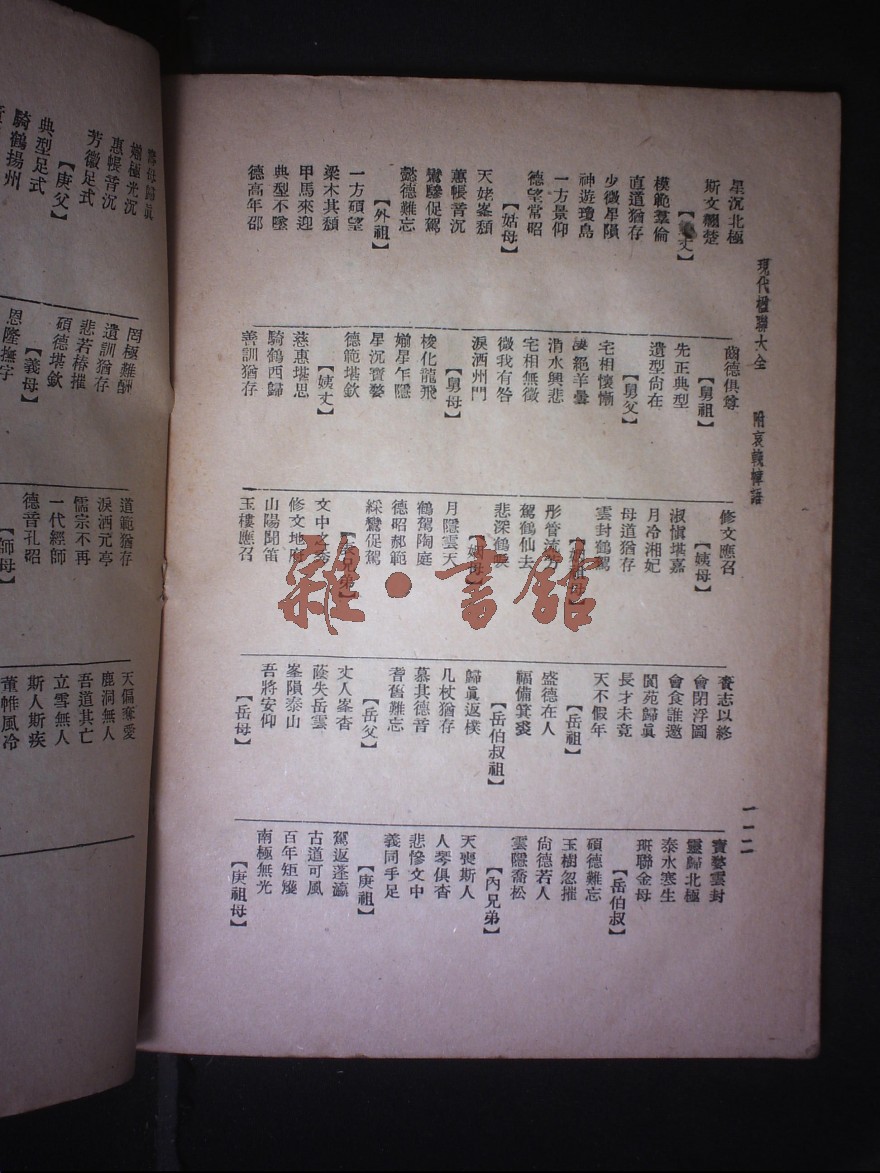 現代楹聯大全 附哀輓幛語
星沉北極
斯文翹楚
丈】
模範羣倫
直道猶存
少微星隕
神遊瓊島
一方景仰
德望常昭
【姑母】
天姥峯頹
蕙帳菁沉
鸞驂促駕
懿德難忘
【外祖】
一方碩望
梁木其頹
甲馬來迎
典型不墜
德高年邵
齒德俱尊
【舅祖】
先正典型
遺型尙在
【舅父】
宅相懷慚
淒絕羊曇
渭水興悲
宅相無徵
微我有咎
淚洒州門
【舅母】
梭化龍飛
婺星乍隱
星沉寶婺
德範堪欽
【姨丈】
慈惠堪思
騎鶴西歸
善訓猶存
修文應召
【姨母】
淑愼堪嘉
月冷湘妃
母道猶存
雲封鶴駕
祖母】
彤管流芳
駕鶴仙去
悲深鶴唳
母】
月隱雲天
鶴駕陶庭
德昭郝範
綵鸞促駕
兄弟】
文中之秀
修文地府
山陽聞笛
玉樓應召
賫志以終
會閉浮圖
會食誰邀
閬苑歸眞
長才未竟
天不假年
【岳祖】
盛德在人
福備箕裘
【岳伯叔祖】
歸眞返樸
几杖猶存
慕其德音
耆舊難忘
【岳父】
丈人峯杳
蔭失岳雲
峯隕泰山
吾將安仰
【岳母】
寶婺雲封
靈歸北極
泰水寒生
班聯金母
【岳伯叔】
碩德難忘
玉樹忽摧
尙德若人
雲隱喬松
【內兄弟】
天喪斯人
人琴俱杳
悲慘文中
義同手足
【庚祖】
駕返蓬瀛
古道可風
百年矩矱
南極無光
【庚祖母】
一一二
母歸眞
婺極光沉
惠帳菁沉
芳徽足式
【庚父】
典型足式
騎鶴揚州
罔極難酬
遺訓猶存
悲若椿摧
碩德堪欽
【義母】
恩隆撫字
道範猶存
淚洒元亭
儒宗不再
一代經師
德音孔昭
【師母】
天偏奪愛
鹿洞無人
吾道其亡
立雪無人
斯人斯疾
董帷風冷
雜·書館